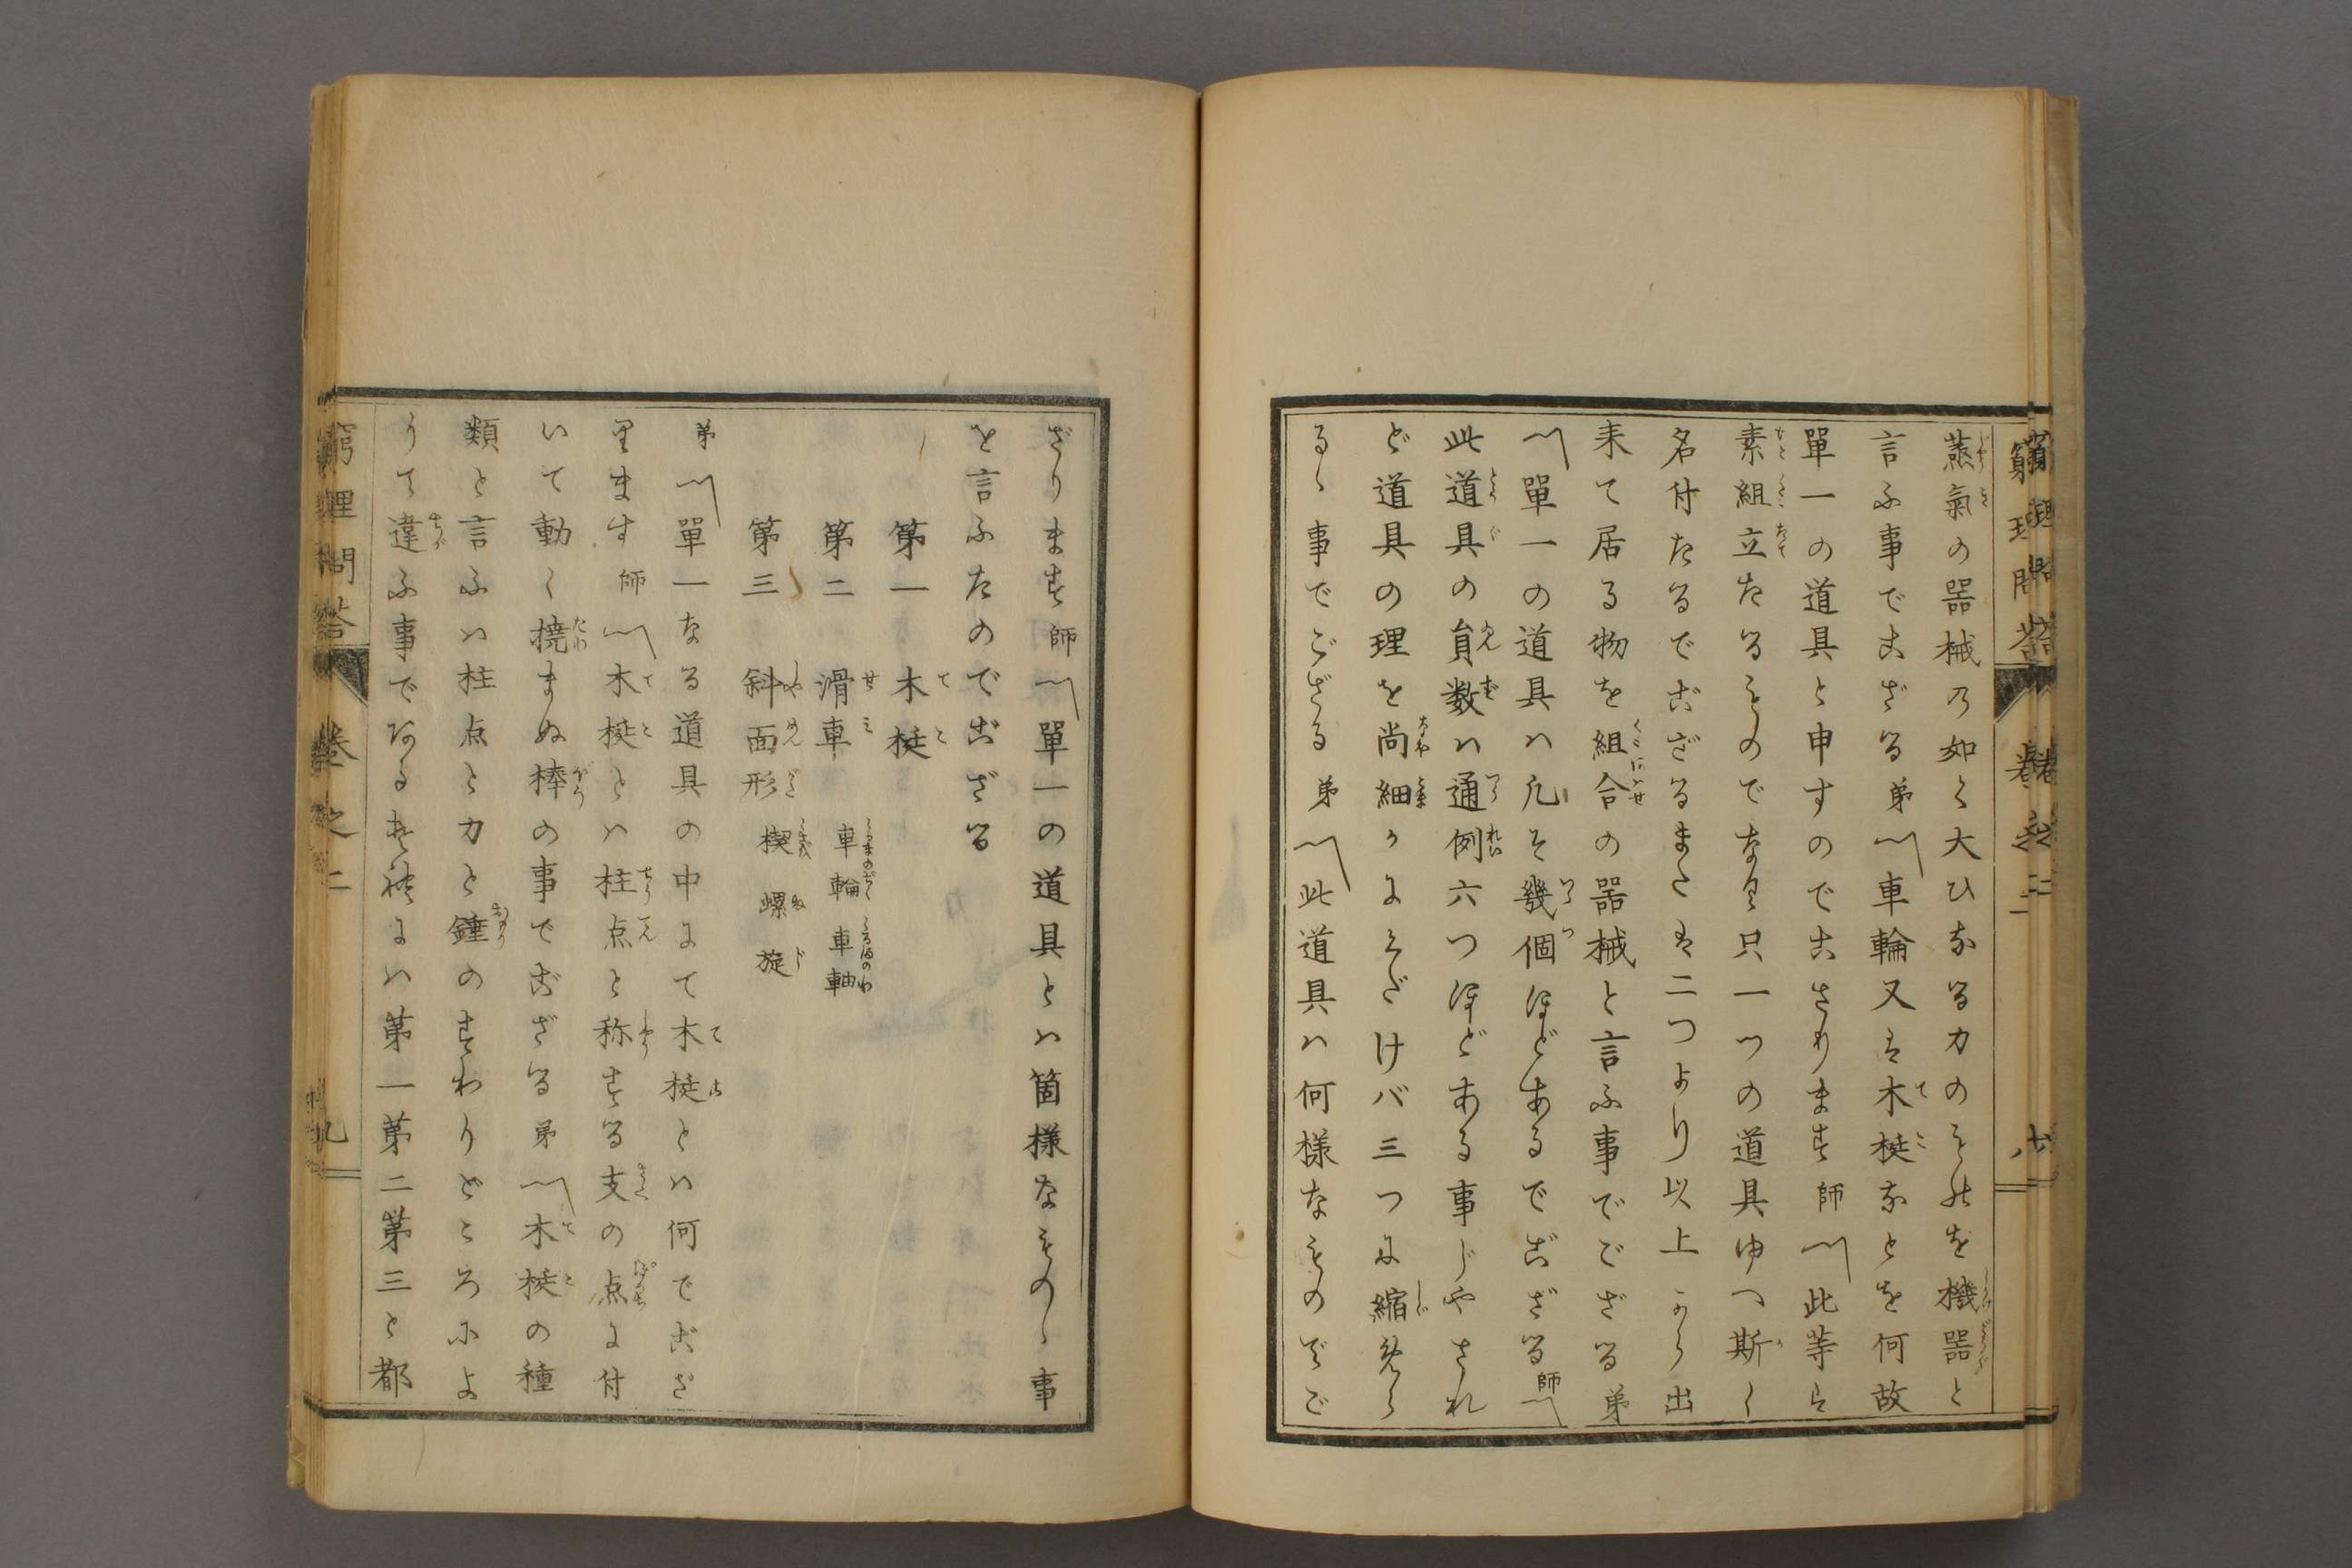 窮理問答 巻之二 八
蒸氣の器械乃如く大ひなる力のものを機器と
言ふ事でござる 弟〽車輪又は木梃なとを何故
單一の道具と申すのでござります 師〽此等は
素組立たるものでなく只一つの道具ゆへ斯く
名付たるでござるまた二つより以上から出
来て居る物を組合の器械と言ふ事でござる 弟
〽單一の道具ハ凡そ幾個ほどあるでござる 師〽
此道具の員数ハ通例六つほどある事じやされ
ど道具の理を尚細かにえだけバ三つに縮めら
るゝ事でござる 弟〽此道具ハ何様なものでご
ざります 師〽單一の道具とハ箇様なものゝ事
を言ふたのでござる
第一 木梃
第二 滑車 車輪 車軸
第三 斜面形 楔 螺旋
弟〽單一なる道具の中にて木梃とハ何でござ
里ます 師〽木梃とハ柱点と称する支の点に付
いて動く撓まぬ棒の事でござる 弟〽木梃の種
類と言ふハ柱点と力と錘のすわりどころによ
りて違ふ事である 師〽ハ第一第二第三と都
窮理問答 巻之二 九